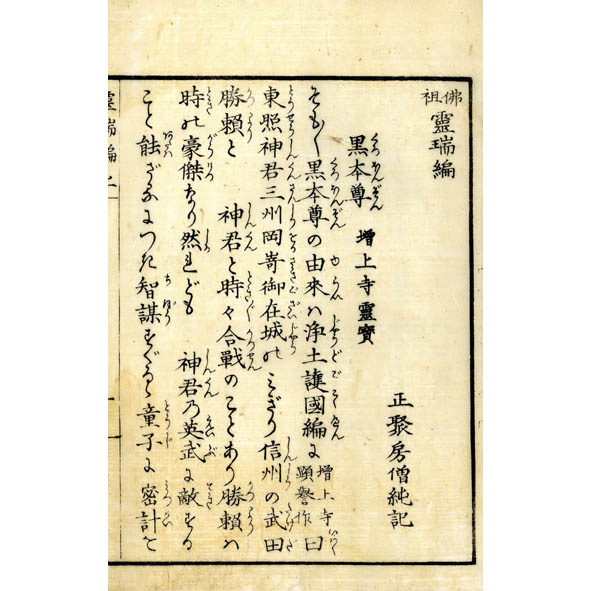 佛祖靈瑞編
正聚房僧純記
黒本尊 増上寺靈寳
そも〳〵黒本尊の由来ハ浄土護國編に増上寺顕誉作曰
東照神君三州岡﨑御在城のみぎり信州の武田
勝頼と 神君と時々合戰のことあり勝頼ハ
時の豪傑なり然れども 神君乃英武に敵する
こと能ざるにつき智謀すぐるゝ童子に密計を
靈瑞編上